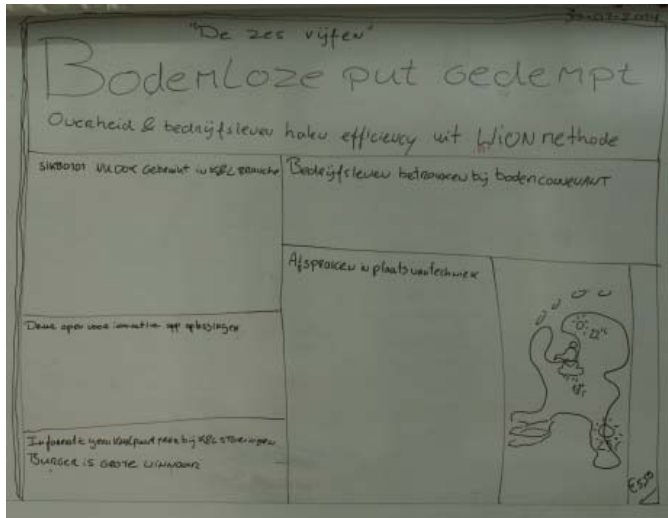 "De zes vijfen"
Bodemloze put gedempt
Overheid & bedrijfsleven halen efficiency uit WION methode
SIKB0101 gebruikt in K&L branche
Bedrijfsleven betrokken bij bodemconvenant
Afspraken in plaats van techniek
Deur open voor innovatie app oplossingen
Informatie geen knelpunt meer bij K&L storingen
Burger is grote winnaar
22°
18°